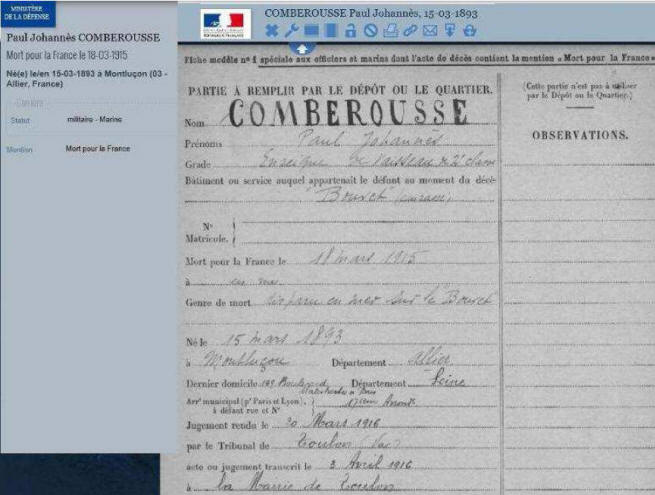 MINISTÈRE
DE LA DÉFENSE
Paul Johannès COMBEROUSSE
Mort pour la France le 18-03-1915
Né(e) le/en 15-03-1893 à Montluçon (03 -
Allier, France)
Carrière
Statut militaire - Marine
Mention Mort pour la France
COMBEROUSSE Paul Johannès, 15-03-1893
Fiche modèle nº 1 spéciale aux officiers et marins dont l'acte de décès contient la mention « Mort pour la France »
PARTIE À REMPLIR PAR LE DÉPÔT OU LE QUARTIER.
(Cette partie n'est pas à utiliser
par le Dépôt ou le Quartier.)
Nom COMBEROUSSE
OBSERVATIONS.
Prénoms Paul Johannès
Grade Enseigne de Vaisseau de 2e classe
Bâtiment ou service auquel appartenait le défunt au moment du décès
"Bouvet"
Nº
Matricule.
Mort pour la France le 18 mars 1915
à en mer
Genre de mort disparu en mer sur le Bouvet
Né le 15 mars 1893
à Montluçon Département Allier
Dernier domicile 149 Boulevard Malesherbes à Paris Département Seine
Arrt municipal (pr Paris et Lyon), 17ème Arront
à défaut rue et Nº
Jugement rendu le 20 Mars 1916
par le Tribunal de Toulon (Var)
acte ou jugement transcrit le 3 Avril 1916
à la Mairie de Toulon